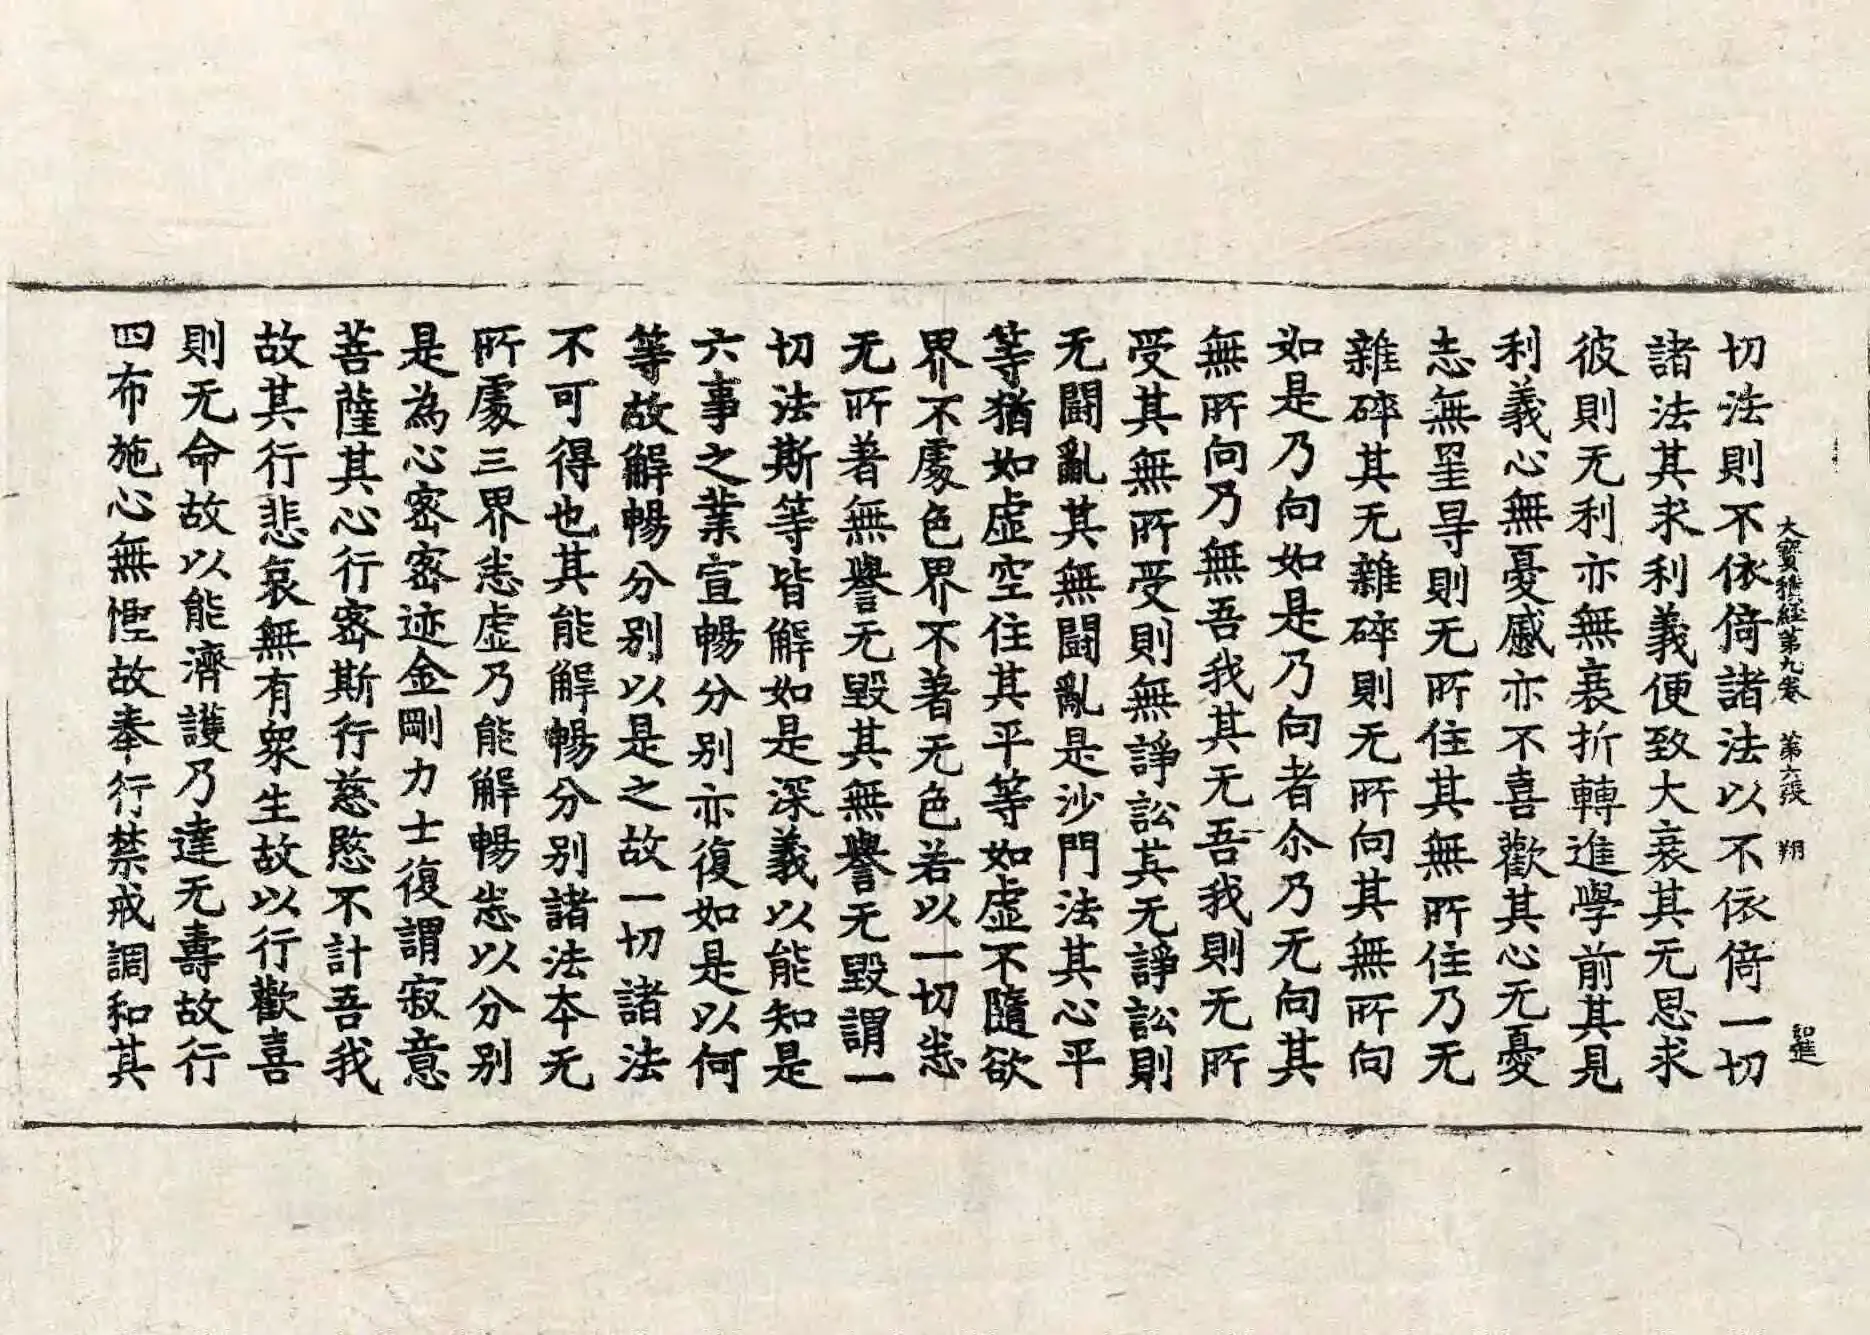 大寶積經第九卷　第六張　翔
切法則不依倚諸法以不依倚一切
諸法其求利義便致大衰其无思求
彼則无利亦無衰折轉進學前其見
利義心無憂慼亦不喜歡其心无憂
志無罣导則无所住其無所住乃无
雜碎其无雜碎則无所向其無所向
如是乃向如是乃向者尒乃无向其
無所向乃無吾我其无吾我則无所
受其無所受則無諍訟其无諍訟則
无鬪亂其無鬪亂是沙門法其心平
等猶如虛空住其平等如虛不隨欲
界不處色界不著无色若以一切悉
无所著無譽无毀其無譽无毀謂一
切法斯等皆解如是深義以能知是
六事之業宣暢分別亦復如是以何
等故解暢分別以是之故一切諸法
不可得也其能解暢分別諸法本无
所處三界悉虛乃能解暢悉以分別
是為心密密迹金剛力士復謂寂意
菩薩其心行密斯行慈愍不計吾我
故其行悲哀無有衆生故以行歡喜
則无命故以能濟護乃達无壽故行
四布施心無慳故奉行禁戒調和其